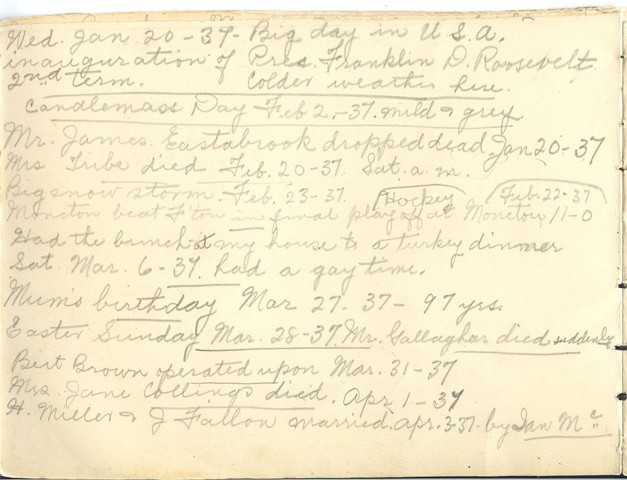 Wed. Jan 20-37- Big day in U S.A.
inauguration of Pres. Franklin D. Roosevelt
2nd term. Colder weather here.
Candlemass Day Feb 2.-37. mild & grey
Mr. James. Eastabrook dropped dead Jan 20-37
Mrs Tribe died Feb. 20-37. Sat. a.m.
Big snow storm. Feb. 23-37. Hockey Feb. 22-37
Moncton beat F'ton in final play off at Moncton 11-0
Had the bunch at my house to a turkey dinner
Sat Mar. 6-37. had a gay time.
Mum's birthday Mar 27. 37- 97 yrs.
Easter Sunday Mar. 28-37. Mr. Gallaghar died suddenly
Bert Brown operated upon Mar. 31-37
Mrs. Jane Collings died. Apr. 1-37
H. Miller & J Fallon married. apr. 3-37. by Ian Mc